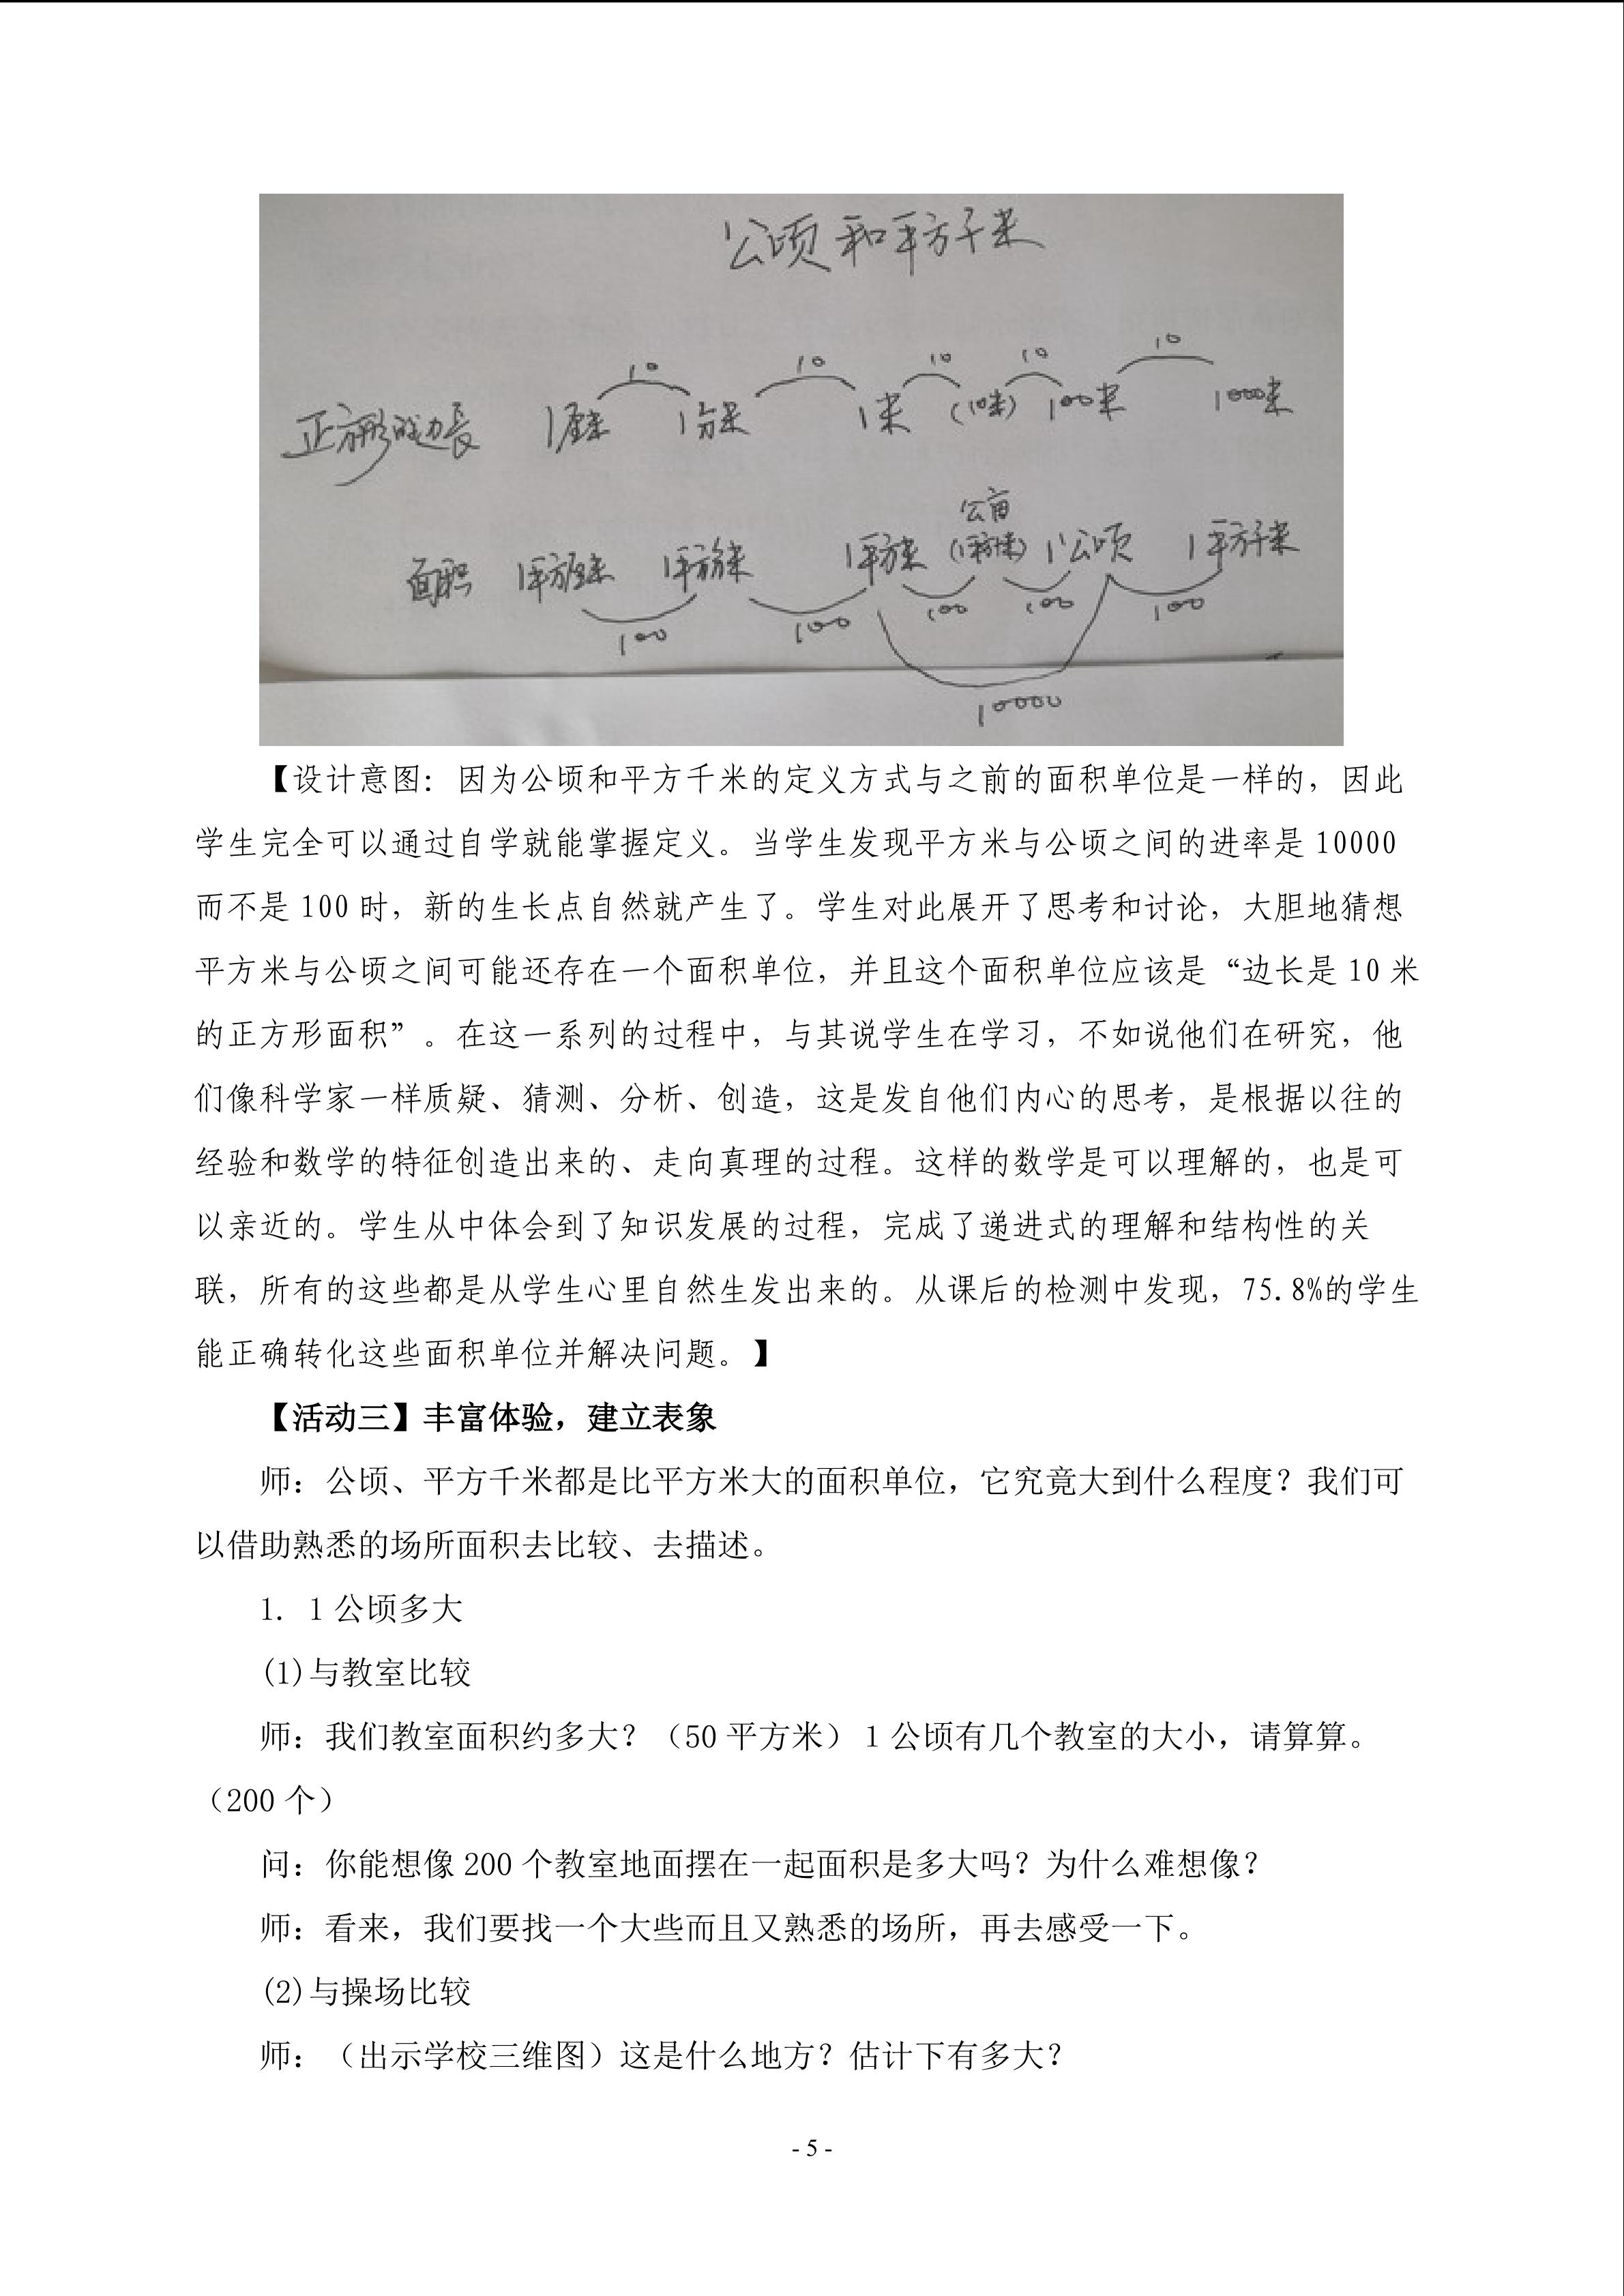 公顷和平方千米
10 10 10 10 10
正方形的边长 1厘米 1分米 1米 (10米) 100米 1000米
公亩
面积 1平方厘米 1平方分米 1平方米 (1平方十米) 1公顷 1平方千米
100 100 100 100 100
10000
【设计意图：因为公顷和平方千米的定义方式与之前的面积单位是一样的，因此
学生完全可以通过自学就能掌握定义。当学生发现平方米与公顷之间的进率是 10000
而不是 100 时，新的生长点自然就产生了。学生对此展开了思考和讨论，大胆地猜想
平方米与公顷之间可能还存在一个面积单位，并且这个面积单位应该是“边长是 10 米
的正方形面积”。在这一系列的过程中，与其说学生在学习，不如说他们在研究，他
们像科学家一样质疑、猜测、分析、创造，这是发自他们内心的思考，是根据以往的
经验和数学的特征创造出来的、走向真理的过程。这样的数学是可以理解的，也是可
以亲近的。学生从中体会到了知识发展的过程，完成了递进式的理解和结构性的关
联，所有的这些都是从学生心里自然生发出来的。从课后的检测中发现，75.8%的学生
能正确转化这些面积单位并解决问题。】
【活动三】丰富体验，建立表象
师：公顷、平方千米都是比平方米大的面积单位，它究竟大到什么程度？我们可
以借助熟悉的场所面积去比较、去描述。
1. 1 公顷多大
(1)与教室比较
师：我们教室面积约多大？（50 平方米）1 公顷有几个教室的大小，请算算。
（200 个）
问：你能想像 200 个教室地面摆在一起面积是多大吗？为什么难想像？
师：看来，我们要找一个大些而且又熟悉的场所，再去感受一下。
(2)与操场比较
师：（出示学校三维图）这是什么地方？估计下有多大？
- 5 -